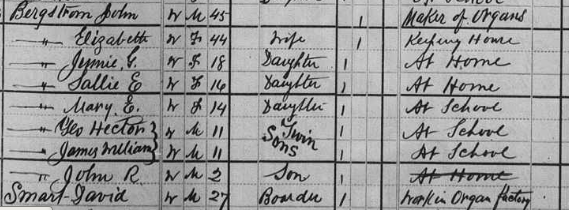 Bergstrom John W M 45 1 Maker of Organs
" Elizabeth W F 44 Wife 1 Keeping House
" Jennie G. W F 18 Daughter 1 At Home
" Sallie E W F 16 Daughter 1 At Home
" Mary E. W F 14 Daughter 1 At School
" Geo Hector W M 11 Twin 1 At School
" James William W M 11 Sons 1 At School
" John R. W M 2 Son 1 At Home
Smart David W M 27 Boarder 1 Work in Organ factory